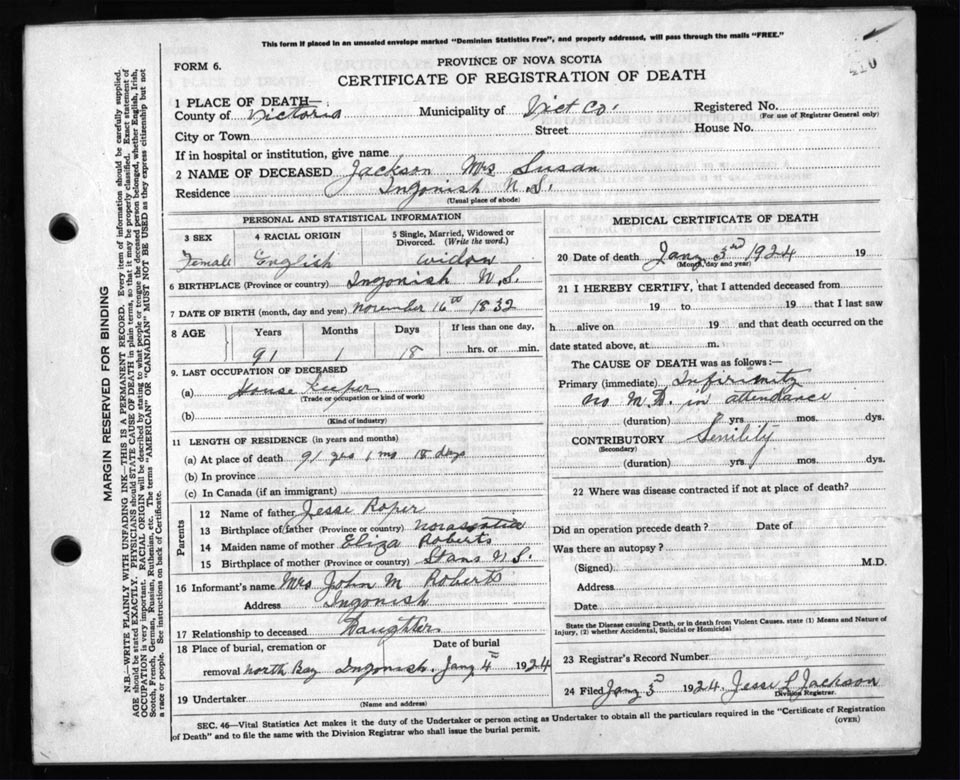 This form if placed in an unsealed envelope marked "Dominion Statistics Free", and property addressed, will pass through the mails "FREE."
410
FORM 6.
PROVINCE OF NOVA SCOTIA
CERTIFICATE OF REGISTRATION OF DEATH
1 PLACE OF DEATH—
County of Victoria Municipality of Vict Co. Registered No.
(For use of Registrar General only)
City or Town Street House No.
If in hospital or institution, give name
2 NAME OF DECEASED Jackson Mrs Susan
Residence Ingonish N.S.
(Usual place of abode)
PERSONAL AND STATISTICAL INFORMATION
3 SEX 4 RACIAL ORIGIN 5 Single, Married, Widowed or Divorced. (Write the word.)
Female English widow
6 BIRTHPLACE (Province or country) Ingonish N.S.
7 DATE OF BIRTH (month, day and year) November 16th 1832
8 AGE Years Months Days If less than one day,
91 1 18 hrs. or min.
9. LAST OCCUPATION OF DECEASED
(a) House Keeper
(Trade or occupation or kind of work)
(b)
(Kind of industry)
11 LENGTH OF RESIDENCE (in years and months)
(a) At place of death 91 yrs 1 mo 18 days
(b) In province
(c) In Canada (if an immigrant)
Parents
12 Name of father Jesse Roper
13 Birthplace of father (Province or country) Nova Scotia
14 Maiden name of mother Eliza Roberts
15 Birthplace of mother (Province or country) N.S.
16 Informant's name Mrs John M Roberts
Address Ingonish
17 Relationship to deceased Daughter
18 Place of burial, cremation or Date of burial
removal North Bay Ingonish. Jany 4th 1924
19 Undertaker
(Name and address)
MEDICAL CERTIFICATE OF DEATH
20 Date of death Jany 3rd 1924 19
(Month, day and year)
21 I HEREBY CERTIFY, that I attended deceased from
19 to 19 that I last saw
h alive on 19 and that death occurred on the
date stated above, at m.
The CAUSE OF DEATH was as follows:—
Primary (immediate) Infirmity
no M.D. in attendance
(duration) yrs. mos. dys.
CONTRIBUTORY Senility
(Secondary)
(duration) yrs. mos. dys.
22 Where was disease contracted if not at place of death?
Did an operation precede death? Date of
Was there an autopsy?
(Signed) M.D.
Address
Date
State the Disease causing Death, or in death from Violent Causes, state (1) Means and Nature of
Injury, (2) whether Accidental, Suicidal or Homicidal
23 Registrar's Record Number
24 Filed Jany 3rd 1924. Jesse L Jackson
Division Registrar.
SEC. 46—Vital Statistics Act makes it the duty of the Undertaker or person acting as Undertaker to obtain all the particulars required in the "Certificate of Registration
of Death" and to file the same with the Division Registrar who shall issue the burial permit.
(OVER)
MARGIN RESERVED FOR BINDING
N.B.—WRITE PLAINLY WITH UNFADING INK—THIS IS A PERMANENT RECORD. Every item of information should be carefully supplied.
AGE should be stated EXACTLY. PHYSICIANS should STATE CAUSE OF DEATH in plain terms, so that it may be properly classified. Exact statement of
OCCUPATION is very important. RACIAL ORIGIN will be described by stating to what people or tongue the deceased person belonged, whether English, Irish,
Scotch, French, German, Russian, Ruthenian, etc. The terms "AMERICAN" OR "CANADIAN" MUST NOT BE USED as they express citizenship but not
a race or people. See instructions on back of Certificate.